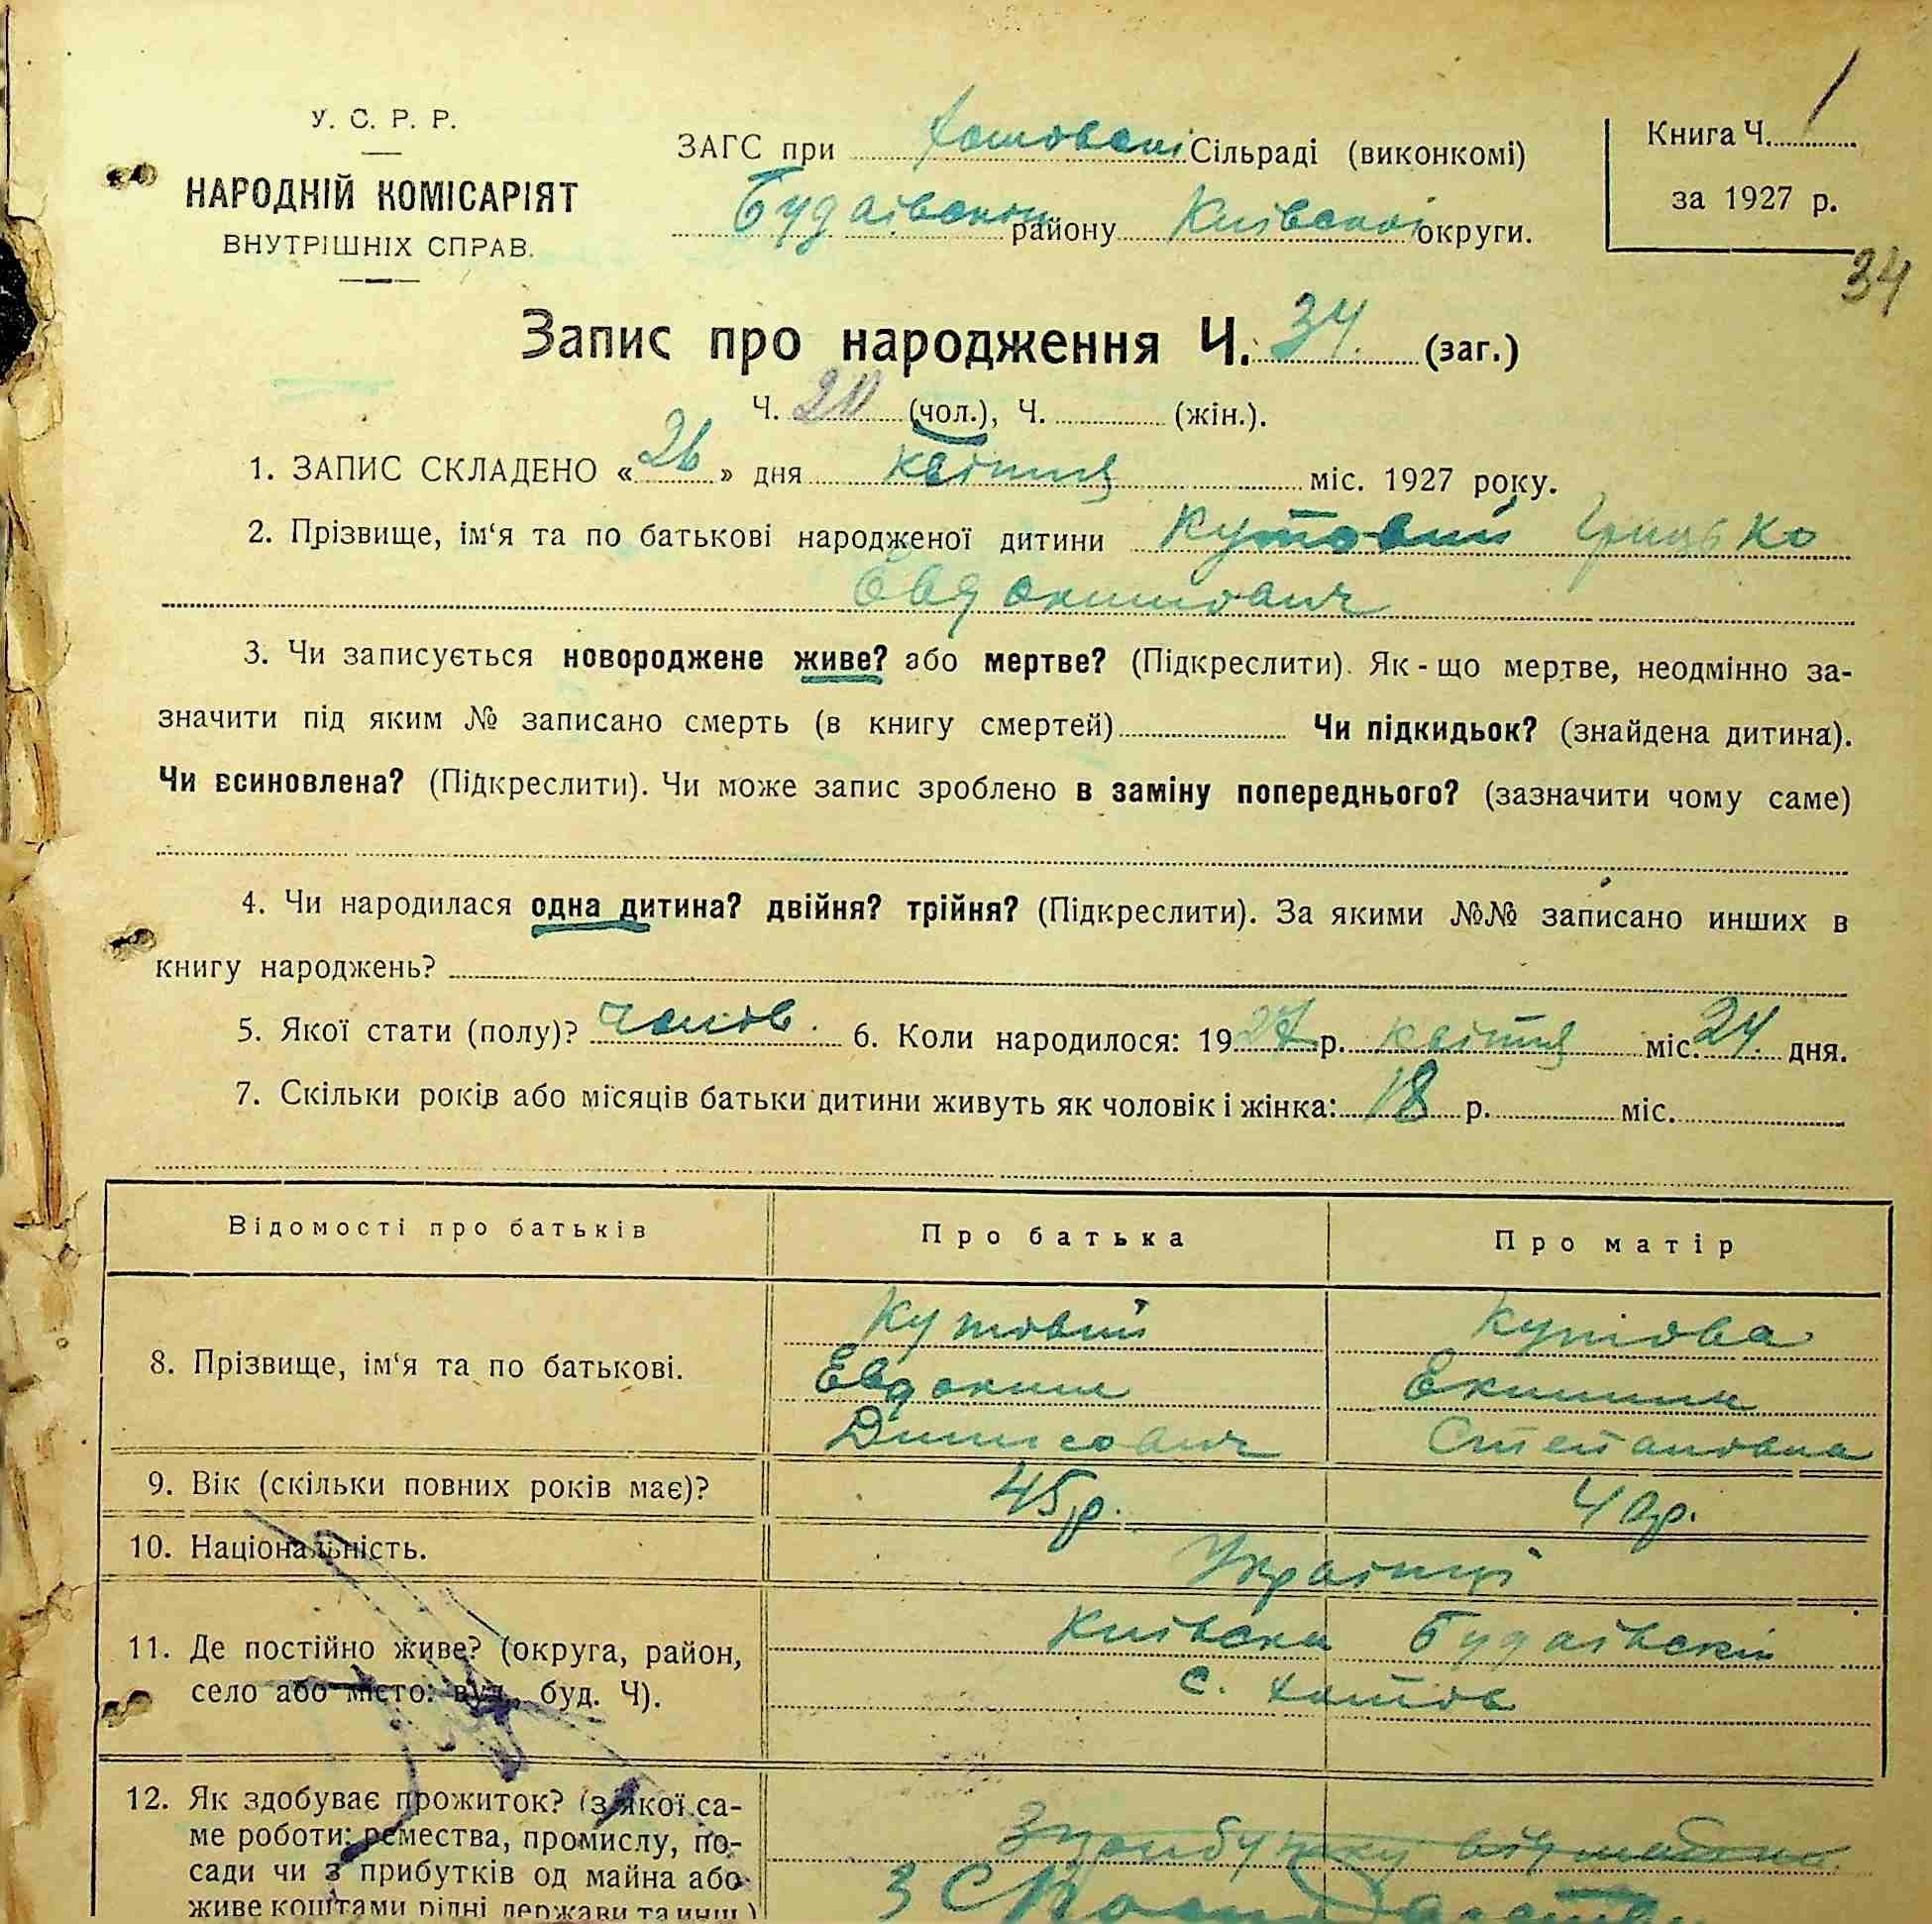 У. С. Р. Р.
НАРОДНІЙ КОМІСАРІЯТ
ВНУТРІШНІХ СПРАВ.
ЗАГС при Хотовскі Сільраді (виконкомі)
Будаівском району Киівскоі округи.
Книга Ч. 1
за 1927 р.
34
Запис про народження Ч. 34. (заг.)
Ч. 20 (чол.), Ч. (жін.).
1. ЗАПИС СКЛАДЕНО «26» дня квітня міс. 1927 року.
2. Прізвище, ім‘я та по батькові народженої дитини Кутовий Грицько
Евдокимович
3. Чи записується новороджене живе? або мертве? (Підкреслити). Як-що мертве, неодмінно за-
значити під яким № записано смерть (в книгу смертей) Чи підкидьок? (знайдена дитина).
Чи всиновлена? (Підкреслити). Чи може запис зроблено в заміну попереднього? (зазначити чому саме)
4. Чи народилася одна дитина? двійня? трійня? (Підкреслити). За якими №№ записано инших в
книгу народжень?
5. Якої стати (полу)? чолов. 6. Коли народилося: 1927 р. квітня міс. 24. дня.
7. Скільки років або місяців батьки дитини живуть як чоловік і жінка: 18 р. міс.
Відомості про батьків Про батька Про матір
8. Прізвище, ім‘я та по батькові.
Кутовий Кутова
Евдоким Екилина
Динисович Степановна
9. Вік (скільки повних років має)? 45р. 40р.
10. Національність. Українці
11. Де постійно живе? (округа, район,
село або місто: вул., буд. Ч).
Киівска Будаівскій
с. Хотов
12. Як здобуває прожиток? (з якої са-
ме роботи: ремества, промислу, по-
сади чи з прибутків од майна або
живе коштами рідні держави та инш.)
З прибутку від